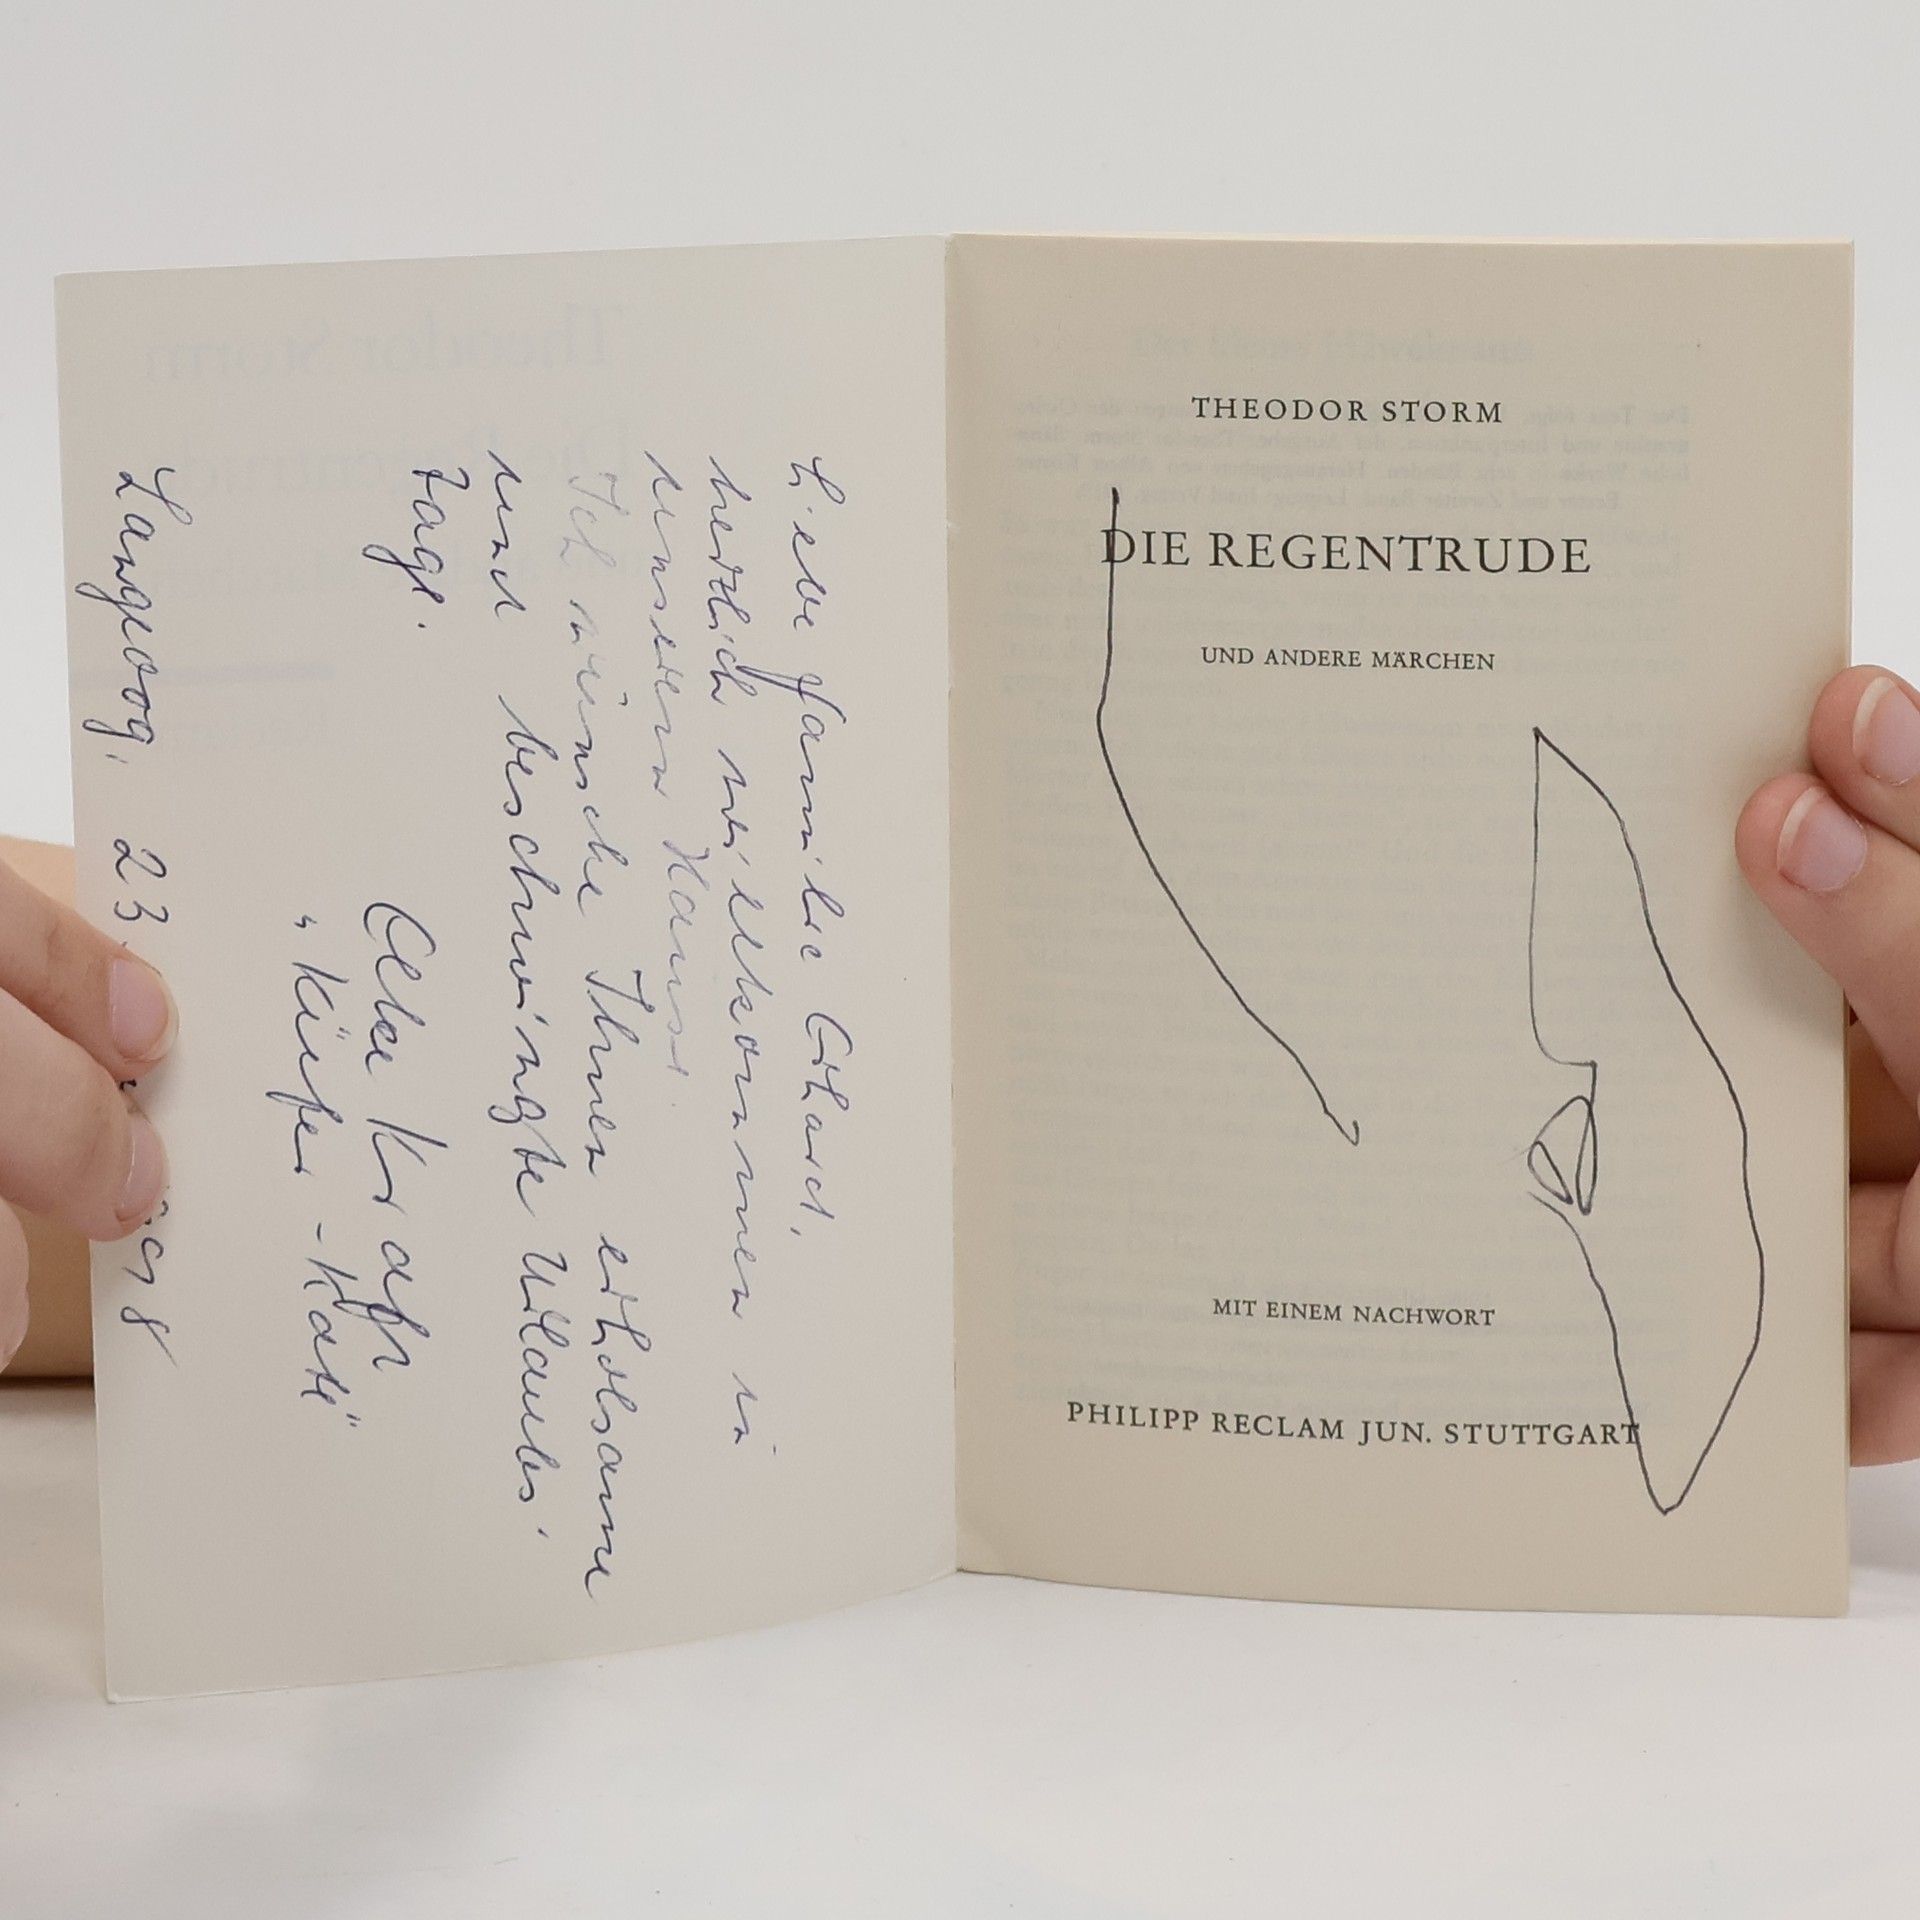 Liebe Familie
herzlich willkommen in
unserem Haus!
Ich wünsche Ihnen erholsame
und beschwingte Urlaubs-
tage.
Elke Kraft
„Küper-Kate"
Langeoog, 23.
THEODOR STORM
DIE REGENTRUDE
UND ANDERE MÄRCHEN
MIT EINEM NACHWORT
PHILIPP RECLAM JUN. STUTTGART